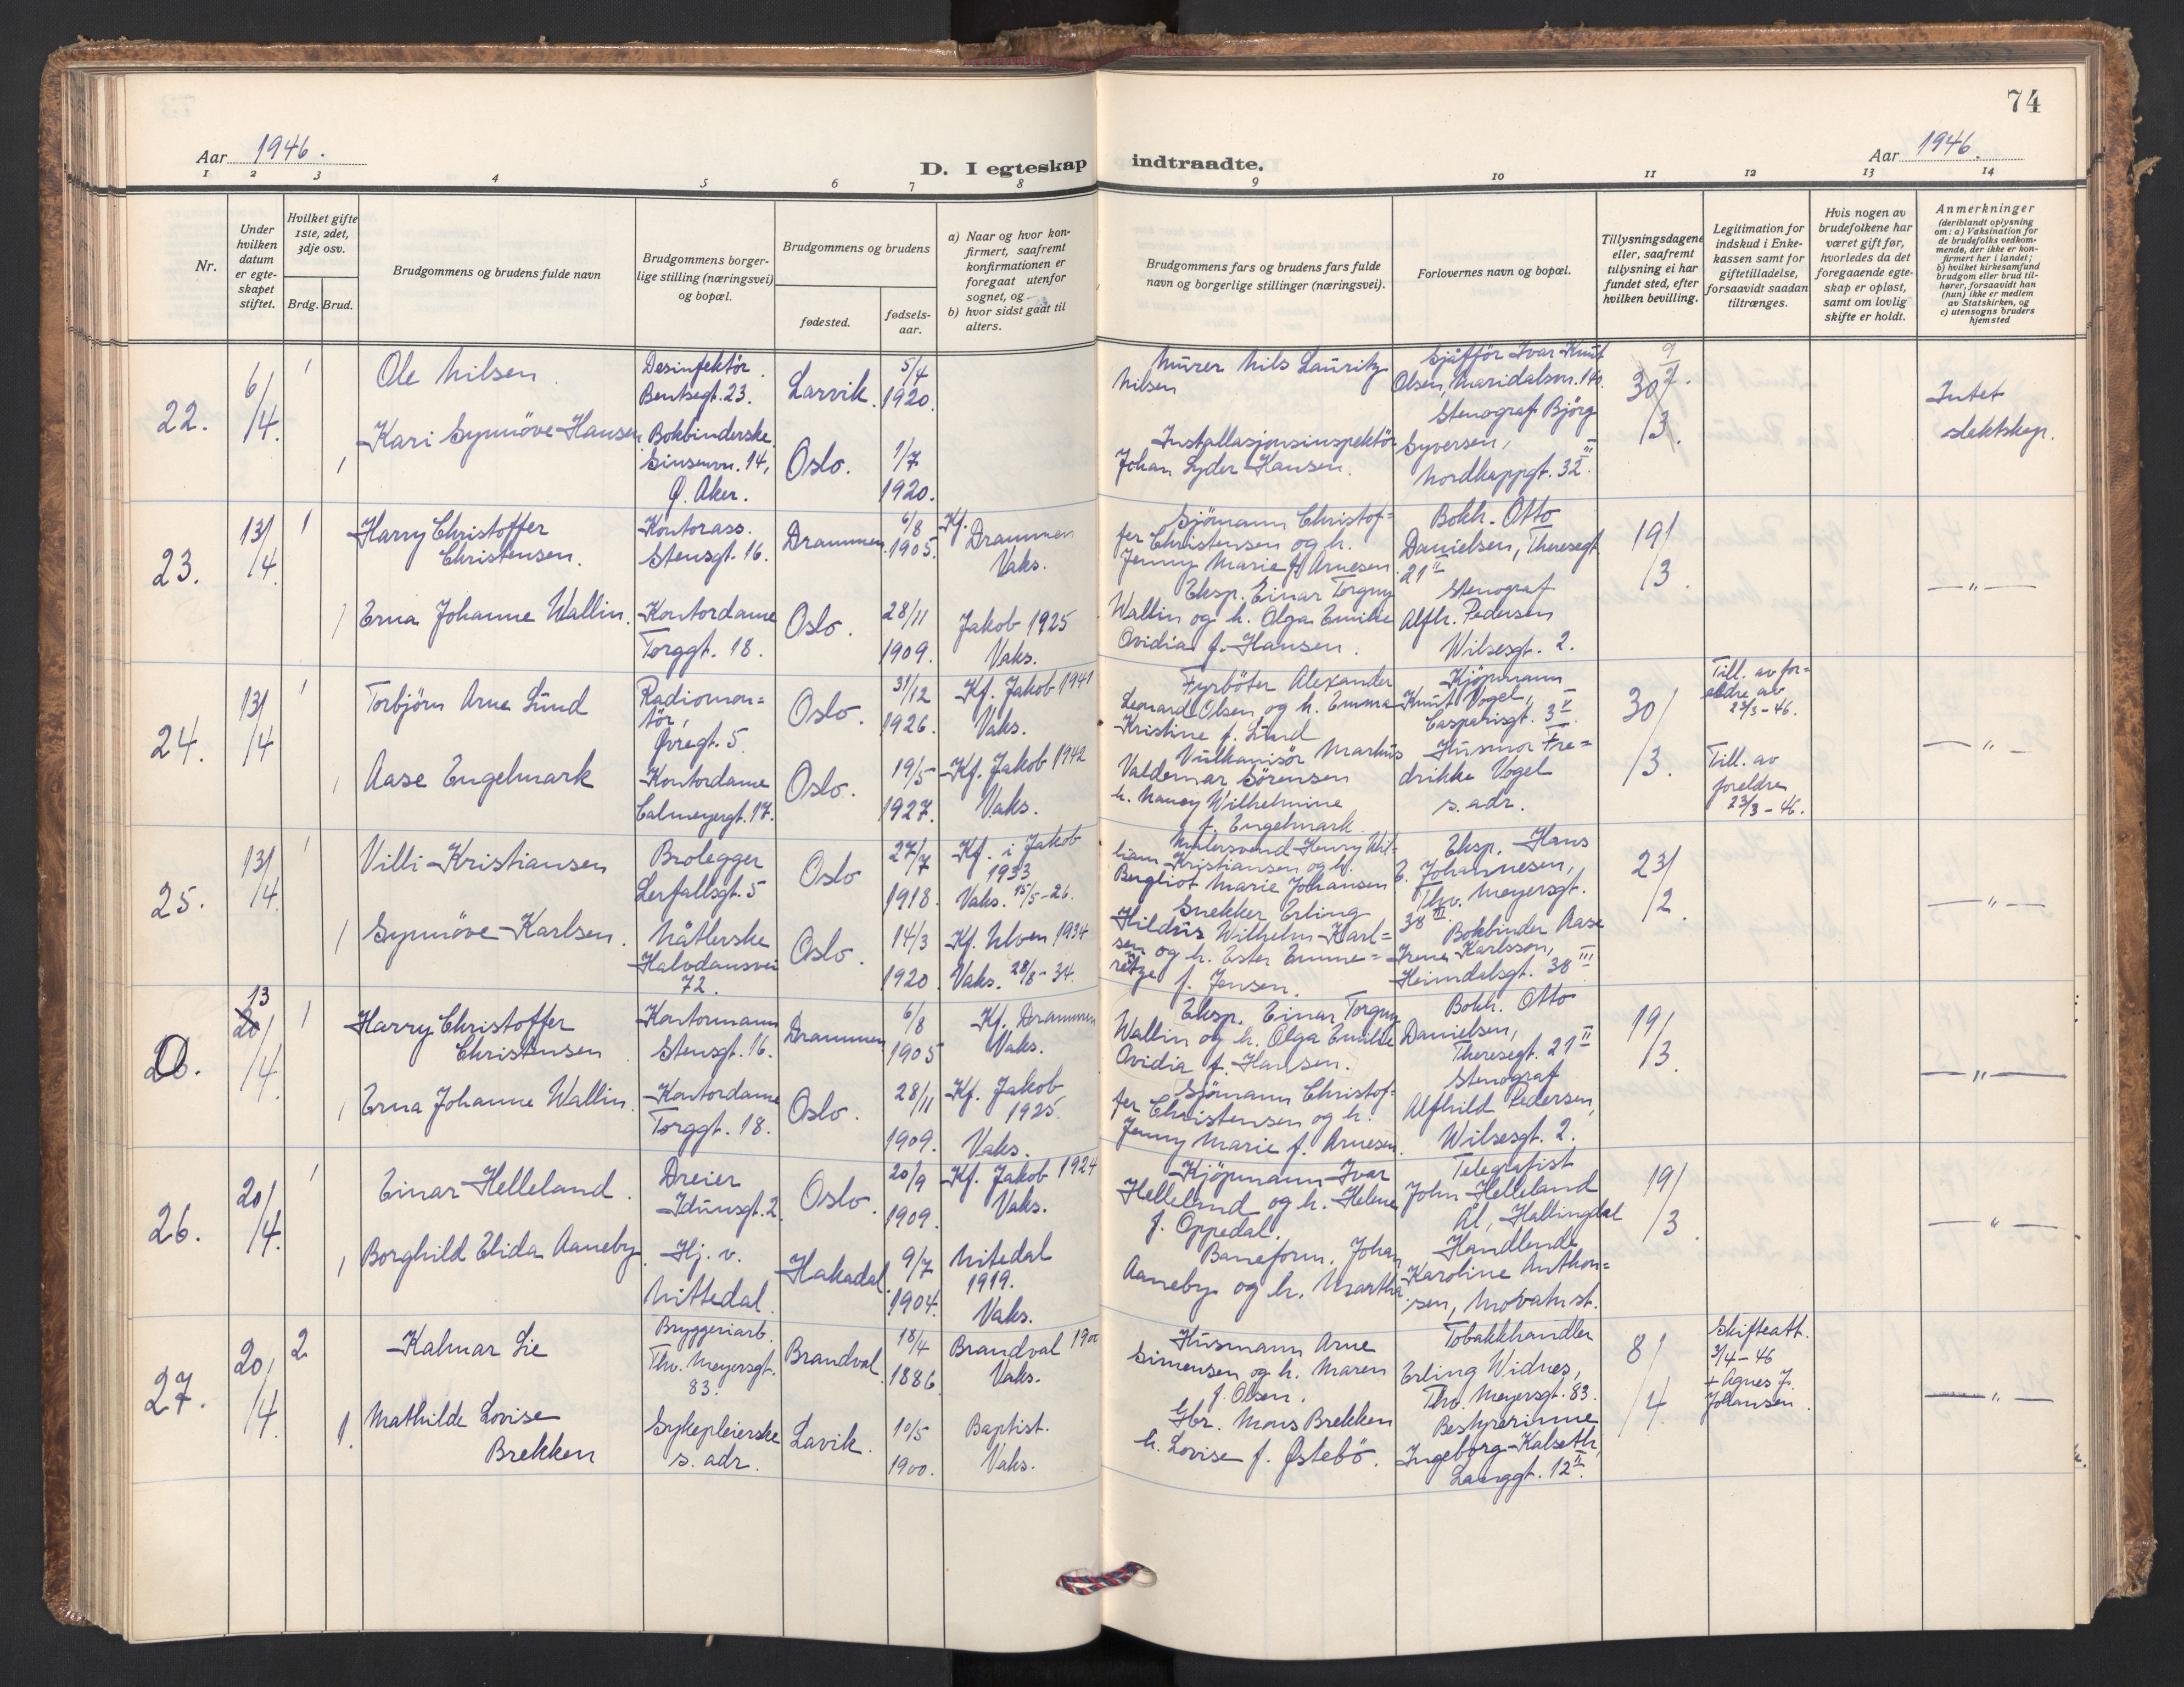 74
Aar 1946.
D. I egteskap indtraadte.
Aar 1946.
1 2 3 4 5 6 7 8 9 10 11 12 13 14
Nr.
Under hvilken datum er egte-skapet stiftet.
Hvilket gifte 1ste, 2det, 3dje osv.
Brdg. Brud.
Brudgommens og brudens fulde navn
Brudgommens borger-lige stilling (næringsvei) og bopæl.
Brudgommens og brudens
fødested.
fødsels-aar.
a) Naar og hvor kon-firmert, saafremt konfirmationen er foregaat utenfor sognet, og
b) hvor sidst gaat til alters.
Brudgommens fars og brudens fars fulde navn og borgerlige stillinger (næringsvei).
Forlovernes navn og bopæl.
Tillysningsdagene eller, saafremt tillysning ei har fundet sted, efter hvilken bevilling.
Legitimation for indskud i Enke-kassen samt for giftetilladelse, forsaavidt saadan tiltrænges.
Hvis nogen av brudefolkene har været gift før, hvorledes da det foregaaende egte-skap er opløst, samt om lovlig skifte er holdt.
Anmerkninger
(deriblandt oplysning om: a) Vaksination for de brudefolks vedkom-mende, der ikke er kon-firmert her i landet;
b) hvilket kirkesamfund brudgom eller brud til-hører, forsaavidt han (hun) ikke er medlem av Statskirken, og
c) utensogns bruders hjemsted
22.
6/4.
1
Ole Nilsen.
Desinfektör.
Bentsegt. 23.
Larvik.
5/4
1920.
Murer Nils Lauritz
Nilsen
Sjåfför Ivar Knut
Olsen, Maridalsvn. 140.
30/3.
Intet
slektskap.
1
Kari Synnöve Hansen
Bokbinderske.
Sinsenvn. 14,
Ø. Aker.
Oslo.
1/7
1920.
Installasjonsinspektör
Johan Lyder Hansen.
Stenograf Björg
Syversen,
Nordkappgt. 32 III.
23.
13/4.
1
Harry Christoffer
Christensen.
Kontorass.
Stensgt. 16.
Drammen.
6/8
1905.
Kf.
Drammen
Vaks.
Sjömann Christof=
fer Christensen og h.
Jenny Marie f. Arnesen.
Bokh. Otto
Danielsen, Theresegt.
21 II
19/3.
— " —
1
Erna Johanne Wallin.
Kontordame
Torggt. 18.
Oslo.
28/11
1909.
Jakob 1925
Vaks.
Eksp. Einar Torgny
Wallin og h. Olga Emilie
Ovidia f. Hansen.
Stenograf
Alfh. Pedersen
Wilsesgt. 2.
24.
13/4
1
Torbjörn Arne Lund
Radiomon=
tör,
Øvregt. 5.
Oslo.
31/12
1926.
Kf. Jakob 1941
Vaks.
Fyrböter Alexander
Leonard Olsen og h. Emma
Kristine f. Lund
Kjöpmann
Knut Vogel,
Casparisgt. 3 V.
30/3.
Till. av for=
eldre av
23/3 - 46.
— " —
1
Aase Engelmark
Kontordame
Calmeyergt. 17.
Oslo.
19/5
1927.
Kf. Jakob 1942
Vaks.
Vulkanisör Markus
Valdemar Sörensen
h. Nancy Wilhelmine
f. Engelmark.
Husmor Fre=
drikke Vogel
s. adr.
Till. av
foreldre
23/3 - 46.
25.
13/4.
1
Villi Kristiansen
Brolegger
Lerfallsgt. 5
Oslo
27/7
1918.
Kf. i Jakob
1933
Vaks. 15/5 - 26.
Malersvend Henry Wil-
liam Kristiansen og h.
Bergliot Marie Johansen
Eksp. Hans
E. Johannesen,
Thv. Meyersgt.
38 III.
23/2.
— " —
1
Synnöve Karlsen.
Nåtlerske
Halvdansvei
72.
Oslo.
14/3
1920.
Kf. Ulven 1934
Vaks. 28/8 - 34.
Snekker Erling
Wilhelm Karl=
sen og h. Ester Emme=
f. Jensen.
Bokbinder Aase
Irene Karlsson,
Heimdalsgt. 38 III
0.
13
20/4.
1
Harry Christoffer
Christensen.
Kontormann
Stensgt. 16.
Drammen
6/8
1905
Kf. Drammen
Vaks.
Eksp. Einar Torgny
Wallin og h. Olga Emilie
Ovidia f. Hansen.
Bokh. Otto
Danielsen,
Theresegt. 21 II
19/3.
— " —
1
Erna Johanne Wallin.
Kontordame
Torggt. 18.
Oslo.
28/11
1909.
Kf. Jakob
1925.
Vaks.
Sjömann Christof-
fer Christensen og h.
Jenny Marie f. Arnesen.
Stenograf
Alfhild Pedersen,
Wilsesgt. 2.
26.
20/4.
1
Einar Helleland.
Dreier
Idunsgt. 2.
Oslo.
20/9
1909.
Kf. Jakob 1924
Vaks.
Kjöpmann Ivar
Helleland og h. Helene
f. Oppedal.
Telegrafist
John Helleland
Ål, Hallingdal
19/3.
— " —
1
Borghild Elida Aaneby.
Hj. v.
Nittedal.
Hakadal.
9/7
1904.
Nitedal
1919.
Vaks.
Baneform. Johan
Aaneby og h. Martha.
Handlende
Karoline Anthon=
sen, Movatn st.
27.
20/4.
2
Kalmar Lie
Bryggeriarb.
Thv. Meyersgt.
83.
Brandval
18/4
1886.
Brandval 1900
Vaks.
Husmann Arne
Simensen og h. Maren
f. Olsen.
Tobakkhandler
Erling Widnes,
Thv. Meyersgt. 83.
8/4.
Skifteatt.
3/4 - 46
+ Agnes J.
Johansen.
— " —
1.
Mathilde Lovise
Brekken
Sykepleierske
s. adr.
Lavik.
10/5
1900.
Baptist.
Vaks.
Gbr. Mons Brekken
h. Lovise f. Østebö.
Bestyrerinne
Ingeborg Kalseth,
Langgt. 12 II.